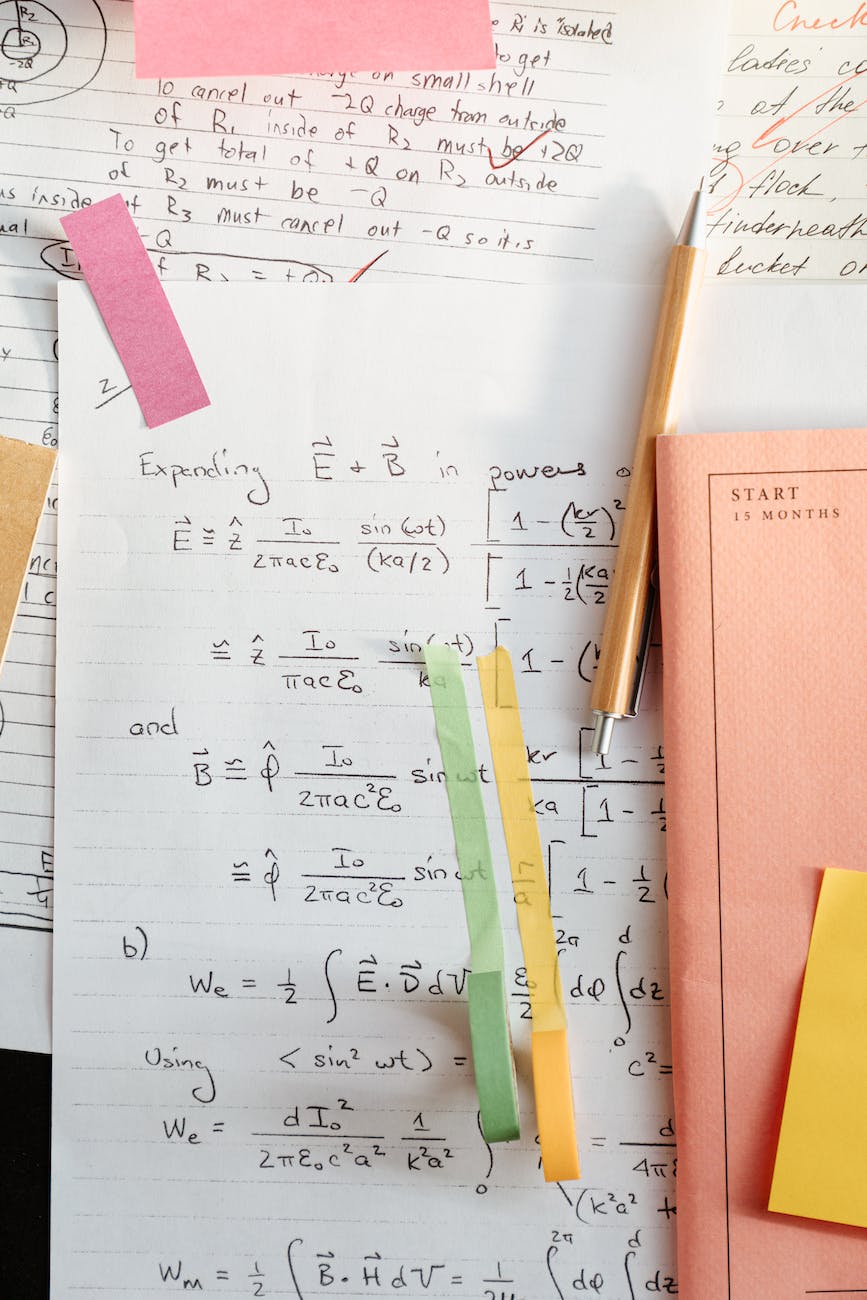 R₂
R₁
-2Q
Ri is isolated
to get
on small shell
to cancel out -2Q charge from outside
of R₁ inside of R₂ must be +2Q
To get total of +Q on R₂ outside
of R₂ must be -Q
inside of R₃ must cancel out -Q so it is
-Q
of R₂ = +Q
ladies'
at the
over
flock,
underneath
bucket
2
Expanding E⃗ + B⃗ in powers
E⃗ ≅ ẑ I₀/(2πacε₀) sin(ωt)/(ka/2) [1 - (kr/2)²
[1 - 1/2(ka/2
≅ ẑ I₀/(πacε₀) sin(ωt)/ka [1 - (
and
B⃗ ≅ φ̂ I₀/(2πac²ε₀) sin ωt kr/ka [1 - 1/2
[1 - 1/2
≅ φ̂ I₀/(2πac²ε₀) sin ωt r/a [1 - 1/2 (
b)
We = 1/2 ∫ E⃗ · D⃗ dV ε₀/2 ∫2π dφ ∫₀d dz
Using < sin² ωt ) = c² =
We = dI₀²/(2πε₀c²a²) 1/(k²a²) ∫₀ = d/4πε
(k²a² +
Wm = 1/2 ∫ B⃗ · H⃗ dV = 1/ ∫2π dφ ∫d dz
START
15 MONTHS